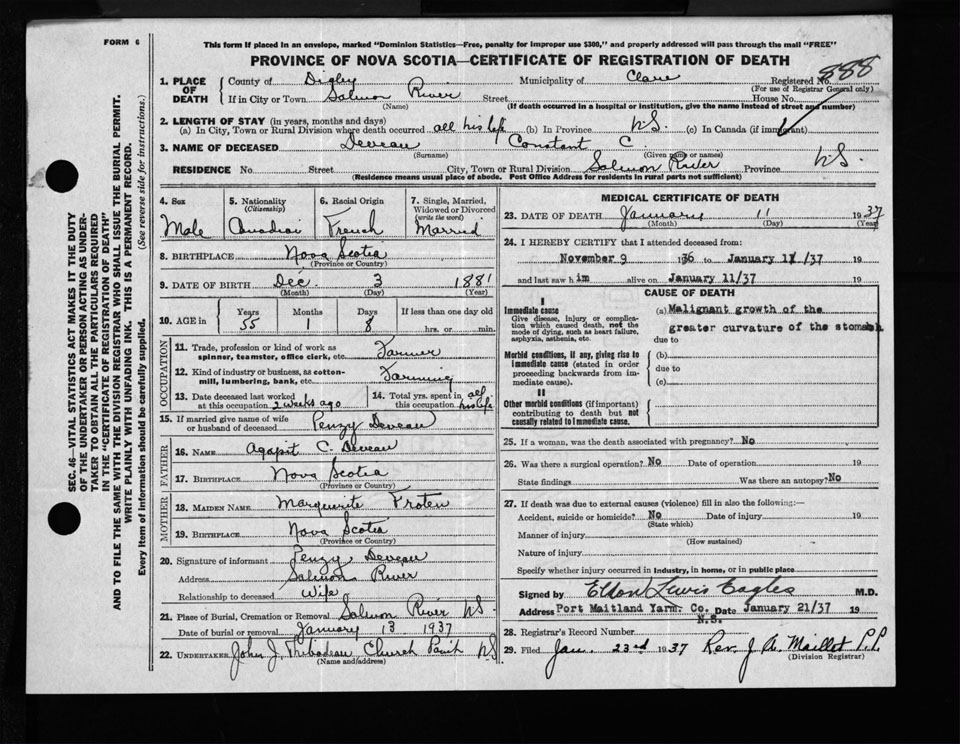 FORM 6
This form if placed in an envelope, marked "Dominion Statistics—Free, penalty for improper use $300," and properly addressed will pass through the mail "FREE"
PROVINCE OF NOVA SCOTIA—CERTIFICATE OF REGISTRATION OF DEATH
888
1. PLACE OF DEATH
County of Digby Municipality of Clare Registered No.
(For use of Registrar General only)
If in City or Town Salmon River Street House No.
(Name) (If death occurred in a hospital or institution, give the name instead of street and number)
2. LENGTH OF STAY (in years, months and days)
(a) In City, Town or Rural Division where death occurred all his life (b) In Province N.S. (c) In Canada (if immigrant)
3. NAME OF DECEASED Deveau Constant C.
(Surname) (Given name or names)
RESIDENCE No. Street City, Town or Rural Division Salmon River Province N.S.
(Residence means usual place of abode. Post Office Address for residents in rural parts not sufficient)
SEC. 46—VITAL STATISTICS ACT MAKES IT THE DUTY
OF THE UNDERTAKER OR PERSON ACTING AS UNDER-
TAKER TO OBTAIN ALL THE PARTICULARS REQUIRED
IN THE "CERTIFICATE OF REGISTRATION OF DEATH"
AND TO FILE THE SAME WITH THE DIVISION REGISTRAR WHO SHALL ISSUE THE BURIAL PERMIT.
WRITE PLAINLY WITH UNFADING INK. THIS IS A PERMANENT RECORD.
Every item of information should be carefully supplied. (See reverse side for instructions.)
4. Sex 5. Nationality (Citizenship) 6. Racial Origin 7. Single, Married, Widowed or Divorced (write the word)
Male Canadian French Married
8. BIRTHPLACE Nova Scotia
(Province or Country)
9. DATE OF BIRTH Dec 3 1881
(Month) (Day) (Year)
10. AGE in Years Months Days If less than one day old
55 1 8 hrs. or min.
OCCUPATION
11. Trade, profession or kind of work as spinner, teamster, office clerk, etc. Farmer
12. Kind of industry or business, as cotton-mill, lumbering, bank, etc. Farming
13. Date deceased last worked at this occupation 2 weeks ago
14. Total yrs. spent in this occupation all his life
15. If married give name of wife or husband of deceased Penzy Deveau
FATHER
16. NAME Agapit C. Deveau
17. BIRTHPLACE Nova Scotia
(Province or Country)
MOTHER
18. MAIDEN NAME Marguerite
19. BIRTHPLACE Nova Scotia
(Province or Country)
20. Signature of informant Penzy Deveau
Address Salmon River
Relationship to deceased Wife
21. Place of Burial, Cremation or Removal Salmon River N.S.
Date of burial or removal January 13 1937
22. UNDERTAKER John J. Thibodeau Church Point N.S.
(Name and address)
MEDICAL CERTIFICATE OF DEATH
23. DATE OF DEATH January 11 1937
(Month) (Day) (Year)
24. I HEREBY CERTIFY that I attended deceased from:
November 9 1936 to January 11/37 19
and last saw him alive on January 11/37 19
CAUSE OF DEATH
I
Immediate cause
Give disease, injury or complication which caused death, not the mode of dying, such as heart failure, asphyxia, asthenia, etc.
(a) Malignant growth of the
greater curvature of the stomach
due to
Morbid conditions, if any, giving rise to immediate cause (stated in order proceeding backwards from immediate cause).
(b)
due to
(c)
II
Other morbid conditions (if important) contributing to death but not causally related to immediate cause.
25. If a woman, was the death associated with pregnancy? No
26. Was there a surgical operation? No Date of operation 19
State findings Was there an autopsy? No
27. If death was due to external causes (violence) fill in also the following:—
Accident, suicide or homicide? No Date of injury 19
(State which)
Manner of injury
(How sustained)
Nature of injury
Specify whether injury occurred in industry, in home, or in public place
Signed by Elton Lewis Eagles M.D.
Address Port Maitland Yarm. Co. Date January 21/37 19
N.S.
28. Registrar's Record Number
29. Filed Jan. 23rd 1937 Rev. J. A. Maillet P.P.
(Division Registrar)